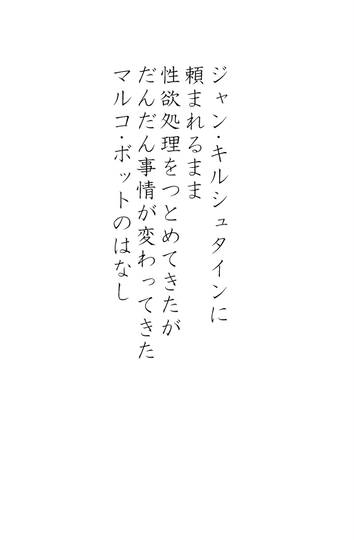 ジャン・キルシュタインに
頼まれるまま
性欲処理をつとめてきたが
だんだん事情が変わってきた
マルコ・ボットのはなし